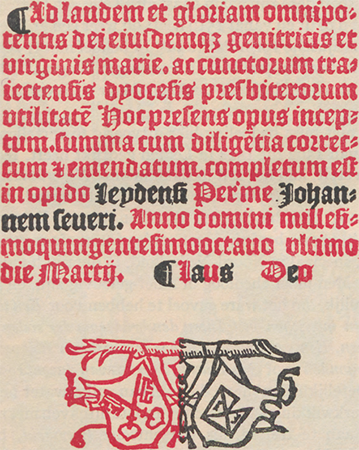 ¶Ad laudem et gloriam omnipo-
tentis dei eiusdemqꝫ genitricis et
virginis marie. ac cunctorum tra-
iectensis dyocesis presbiterorum
vtilitatē Hoc presens opus incep
tum. summa cum diligētia correc-
tum ⁊ emendatum. completum est
in opido Leydensi Per me Johan-
nem seueri. Anno domini millesi-
moquingentesimooctauo vltimo
die Martij. ¶Laus Deo